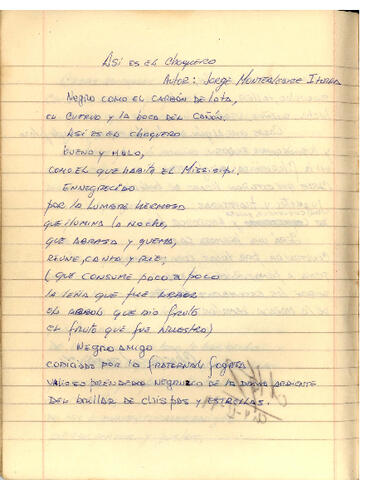 Así es el Choquero
Autor: Jorge Montealegre Iturra
Negro como el carbón de Lota,
el cuervo y la boca del cañón,
Así es el choquero
bueno y malo,
como el que habita el Mississipi,
Ennegrecido
por la lumbre hermosa
que ilumina la noche,
que abrasa y quema,
reúne, canta y ríe;
(que consume poco a poco
la leña que fue árbol
el árbol que dio fruto
el fruto que fue nuestro)
Negro amigo
cobijado por la fraternal fogata
valioso prendedor negruzco de la dama ardiente
del bailar de chispas y estrellas.